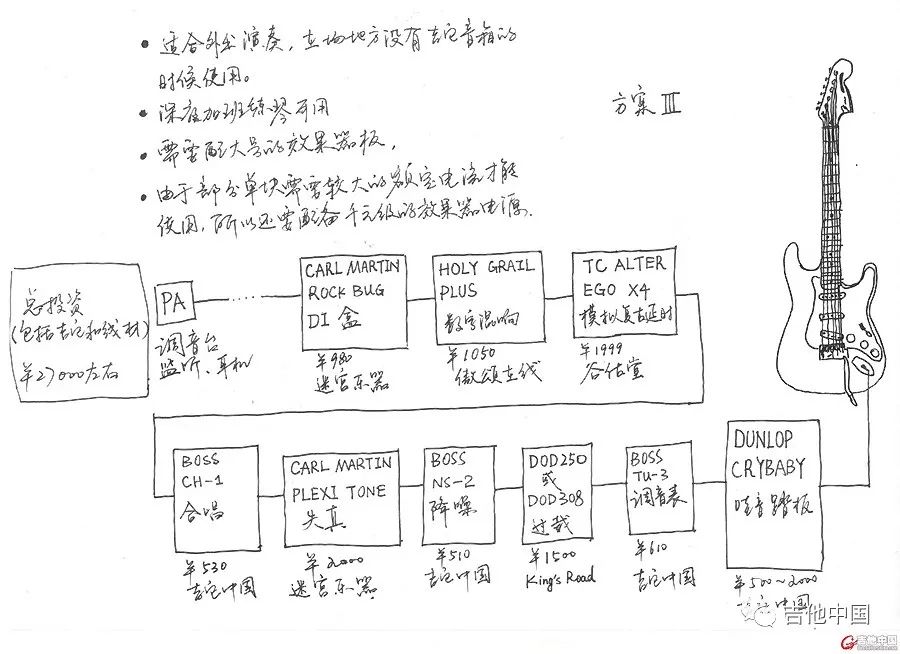 • 适合外出演奏，在场地方没有吉它音箱的
时候使用。
• 深夜加班练琴可用
• 需要配大号的效果器板，
• 由于部分单块需要较大的额定电流才能
使用，所以还要配备千元级的效果器电源.
方案 III
总投资
(包括吉它和线材)
￥27000左右
PA
调音台
监听、耳机
CARL MARTIN
ROCK BUG
DI 盒
￥980
迷宫乐器
HOLY GRAIL
PLUS
数字混响
￥1050
傲颂在线
TC ALTER
EGO X4
模拟复古延时
￥1999
谷佑堂
BOSS
CH-1
合唱
￥530
吉它中国
CARL MARTIN
PLEXI TONE
失真
￥2000
迷宫乐器
BOSS
NS-2
降噪
￥510
吉它中国
DOD250
或
DOD308
过载
￥1500
King's Road
BOSS
TU-3
调音表
￥610
吉它中国
DUNLOP
CRYBABY
哇音踏板
￥500~2000
吉它中国
吉他中国
吉他中国